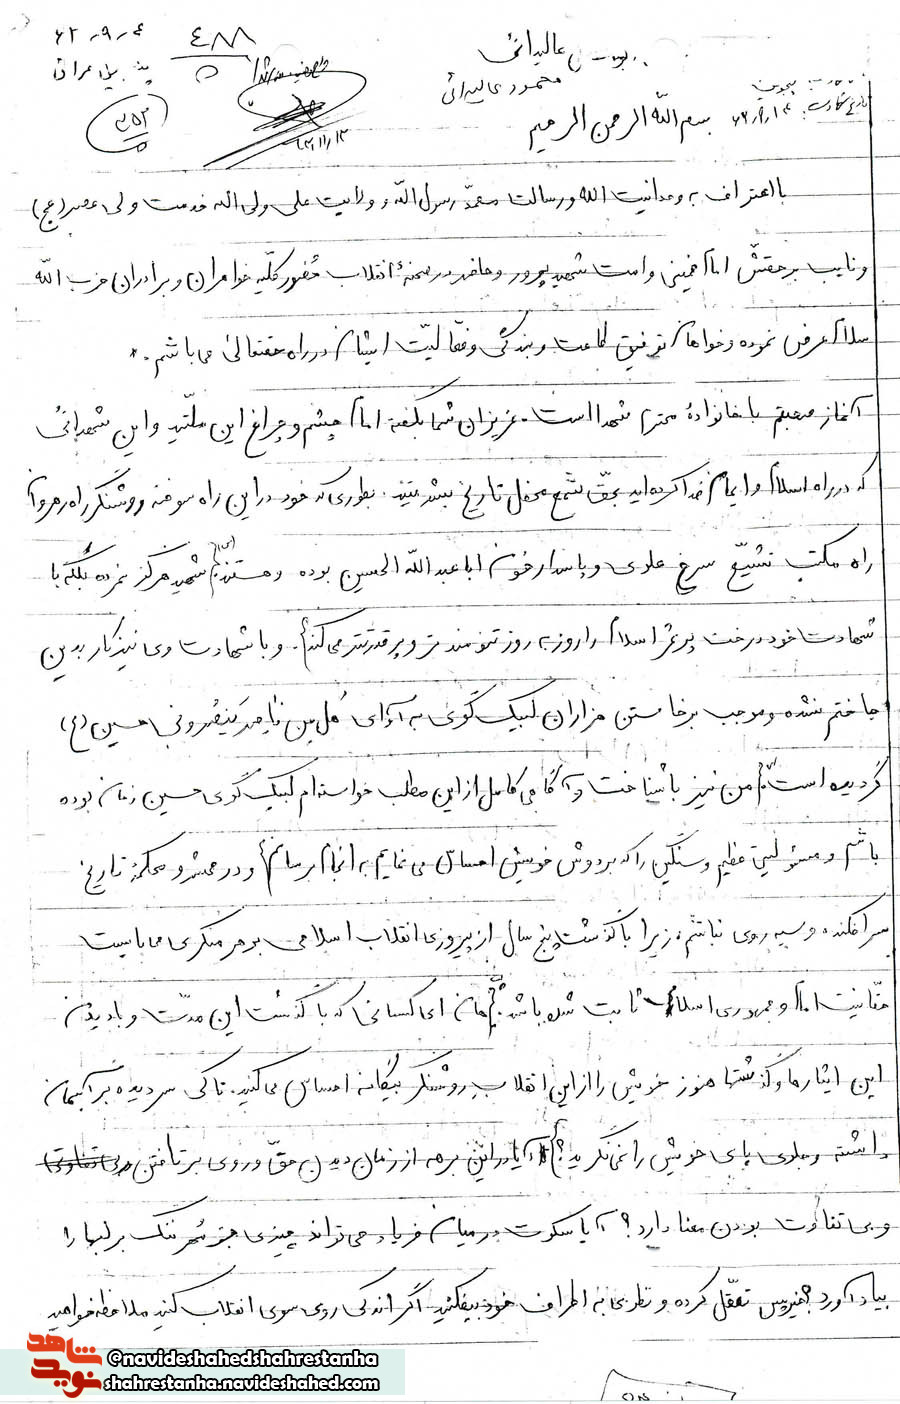 عالیدائی
محمود عالیدائی
بسم اللّه الرحمن الرحیم
با اعتراف به وحدانیت اللّه و رسالت محمّد رسول اللّه و ولایت علی ولی اللّه خدمت ولی عصر (عج)
و نایب برحقش امام خمینی و امت شهیدپرور و حاضر در صحنهٔ انقلاب حضور کلّیه خواهران و برادران حزب اللّه
سلام عرض نموده و خواهان توفیق طاعت و بندگی و فعّالیّت ایشان در راه حقتعالی می باشم.
آغاز صحبتم با خانوادهٔ محترم شهدا است. عزیزان شما بگفته امام چشم و چراغ این ملّتید و این شهدائی
که در راه اسلام و ایمان فدا کرده اید بحقّ شمع محفل تاریخ بشریتند. بطوری که خود در این راه سوخته و روشنگر راه رهروان
راه مکتب تشیّع سرخ علوی و پاسدار خون ابا عبداللّه الحسین بوده و هستند شهید هرگز نمرده بلکه با
شهادت خود درخت پرثمر اسلام را روز به روز تنومندتر و پرقدرتتر می کند. و با شهادت وی نیز کار بدین
جا ختم نشده و موجب برخاستن هزاران لبیک گوی به آوای هل من ناصر ینصرونی حسین (ع)
گردیده است من نیز با شناخت و آگاهی کامل از این مطلب خواسته ام لبیک گوی حسین زمان بوده
باشم و مسئولیت عظیم و سنگین را که بر دوش خویش احساس می نمایم به انجام برسانم و در محشر و محکمهٔ تاریخ
سرافکنده و سیه روی نباشم، زیرا با گذشت پنج سال از پیروزی انقلاب اسلامی بر هر منکری می بایست
حقّانیت امام و جمهوری اسلامی ثابت شده باشد هان ای کسانی که با گذشت این مدّت و با دیدن
این ایثارها و گذشتها هنوز خویش را از این انقلاب روشنگر بیگانه احساس می کنید. تا کی سر دیده بر آسمان
داشته و جلوی پای خویش را نمی نگرید؟ آیا در این برهه از زمان دیدن حقّ و روی برتافتن و بی تفاوتی
و بی تفاوت بودن معنا دارد؟ آیا سکوت در میان فریاد می تواند چیزی جز مُهر ننگ بر لبها را
بیاد آورد؟ پس تعقّل کرده و نظری به اطراف خود بیفکنید اگر اندکی روی سوی انقلاب کنید ملاحظه خواهید
نوید شاهد
@navideshahedshahrestanha
shahrestanha.navideshahed.com